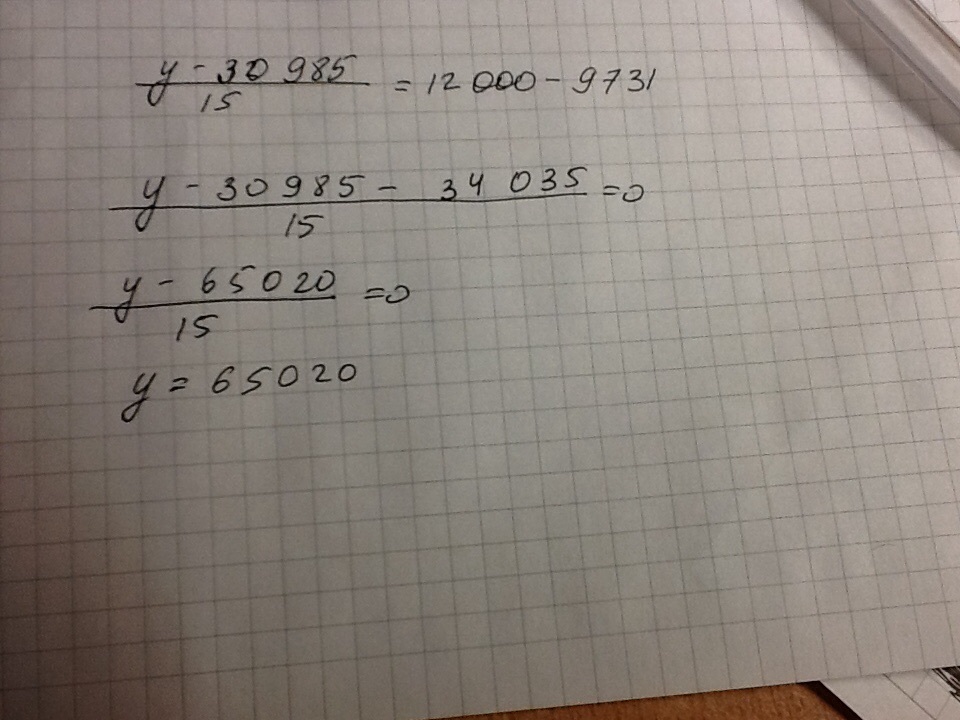 y - 30 985 / 15 = 12 000 - 9731
y - 30985 - 34 035 / 15 = 0
y - 65020 / 15 = 0
y = 65020